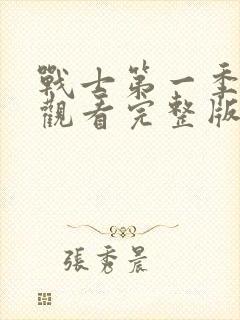 戰士第一季
觀看完整版
張秀晨